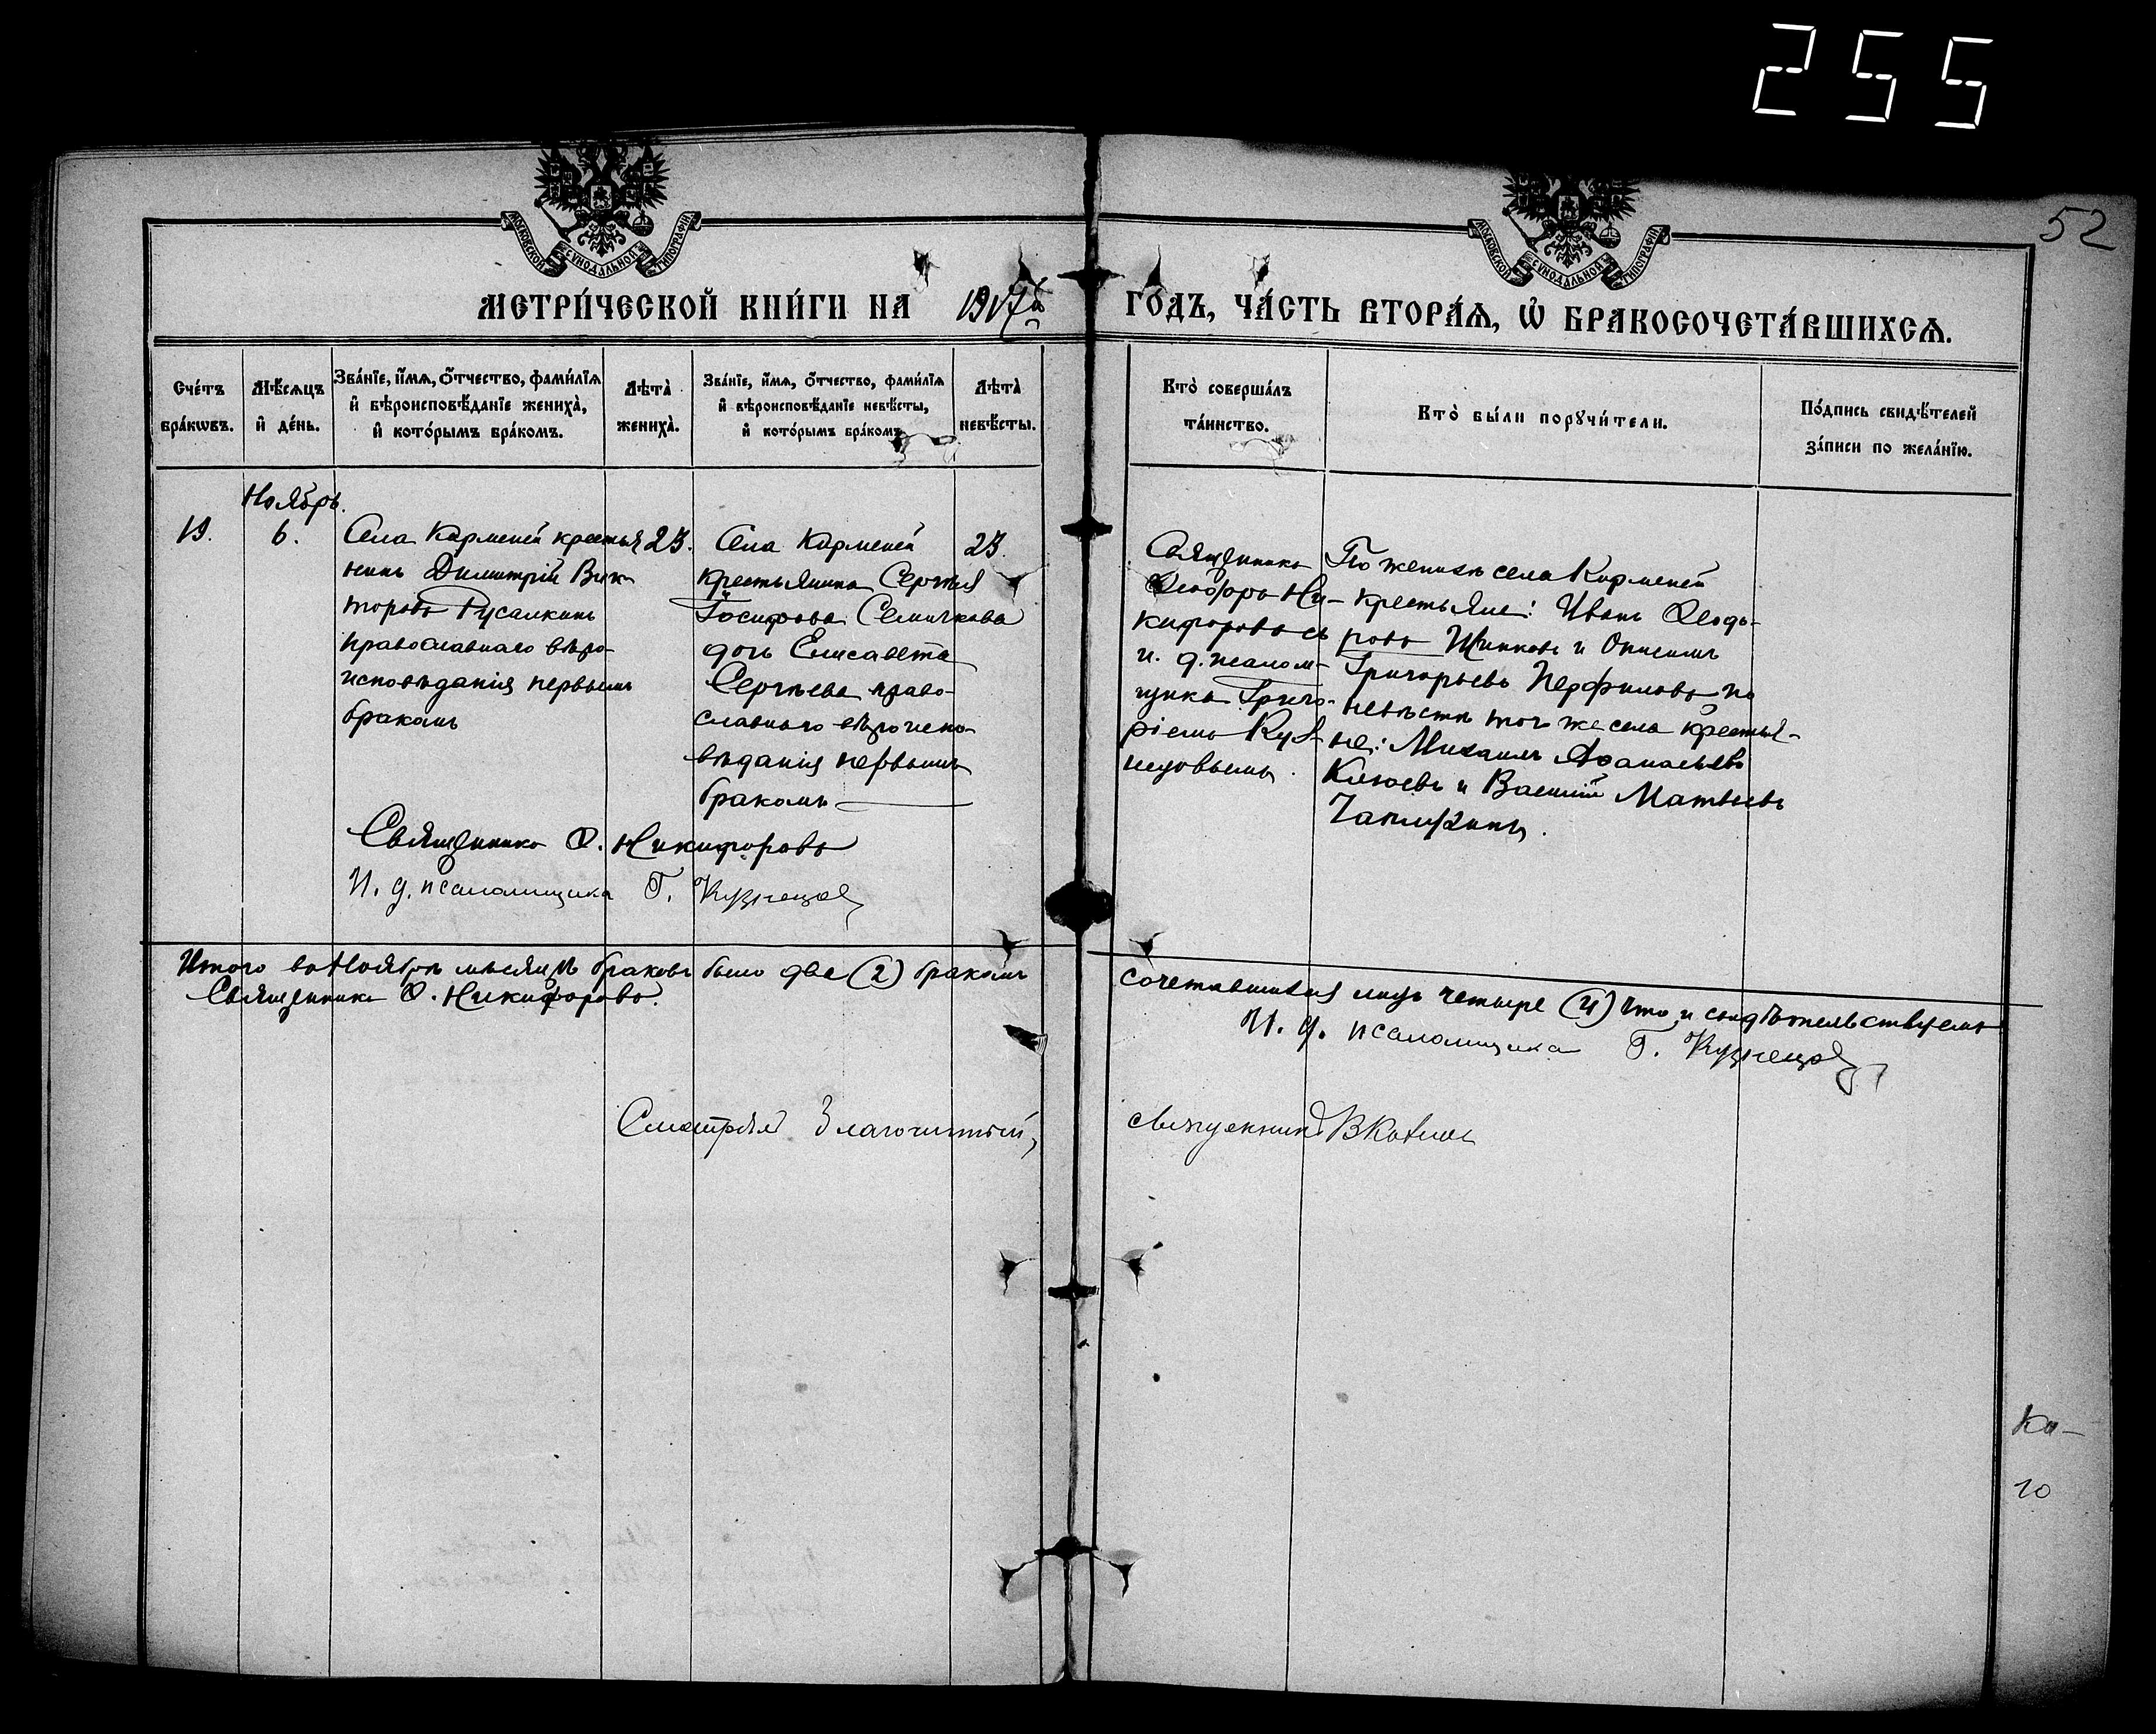 255
52
МОСКОВСКОЙ СѴНОДАЛЬНОЙ ТИПОГРАФІИ
МОСКОВСКОЙ СѴНОДАЛЬНОЙ ТИПОГРАФІИ
МЕТРИ́ЧЕСКОЙ КНИ́ГИ НА 1917й ГО́ДЪ, ЧА́СТЬ ВТОРА́Ѧ, Ѡ҆ БРАКОСОЧЕТА́ВШИХСѦ.
Сче́тъ бра́кѡвъ.
Мѣ́сѧцъ и҆ де́нь.
Зва́нїе, и҆́мѧ, ѻ҆́тчество, фами́лїѧ
и҆ вѣроисповѣ́данїе жениха̀,
и҆ кото́рымъ бра́комъ.
Лѣта̀ жениха̀.
Зва́нїе, и҆́мѧ, ѻ҆́тчество, фами́лїѧ
и҆ вѣроисповѣ́данїе невѣ́сты,
и҆ кото́рымъ бра́комъ
Лѣта̀ невѣ́сты.
Кто̀ соверша́лъ та́инство.
Кто̀ бы́ли порꙋчи́тели.
По́дпись свидѣ́телей за́писи по жела́нїю.
Ноябрь.
19.
6.
Села Карменей крестья
нинъ Димитрій Вик
торовъ Русалкинъ
православнаго вѣро-
исповѣданія первымъ
бракомъ
23.
Села Карменей
крестьянина Сергѣя
Іосифова Семичкова
дочь Елисавета
Сергѣева право-
славнаго вѣроиспо-
вѣданія первымъ
бракомъ
23.
Священникъ
Ѳеодоръ Ни-
кифоровъ съ
и. д. псалом-
щика Григо-
ріемъ Куз-
нецовымъ.
По женихѣ села Карменей
крестьяне: Иванъ Ѳеодо-
ровъ Шинковъ и Онисимъ
Григорьевъ Перфиловъ по
невѣстѣ того же села крестья-
не: Михаилъ Аѳанасьевъ
Клюевъ и Василій Матвѣевъ
Чаплыкинъ.
Священникъ Ѳ. Никифоровъ
И. д. псаломщика Г. Кузнецов
Итого въ Ноябрѣ мѣсяцѣ браковъ было два (2) бракомъ сочетавшихся лицъ четыре (4) что и свидѣтельствуемъ
Священникъ Ѳ. Никифоровъ.
И. д. псаломщика Г. Кузнецов
Смотрѣлъ Благочинный, священникъ В
Ка-
10